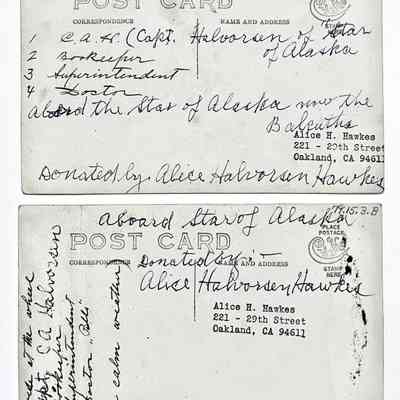 POST CARD
CORRESPONDENCE NAME AND ADDRESS
1 C.A.H. (Capt. Halvorsen of "Star
of Alaska
2 Bookeeper
3 Superintendent
4 Doctor
Aboard the Star of Alaska now the
Balcutha
Alice H. Hawkes
221 - 29th Street
Oakland, CA 94611
Donated by Alice Halvorsen Hawkes
Aboard Star of Alaska
POST CARD
PLACE
POSTAGE
STAMP
HERE
CORRESPONDENCE NAME AND ADDRESS
Donated by :-
Alice Halvorsen Hawkes
Alice H. Hawkes
221 - 29th Street
Oakland, CA 94611
at the wheel
Capt. C A Halvorsen
Bookeeper
Superintendent
Doctor "Bills"
calm weather